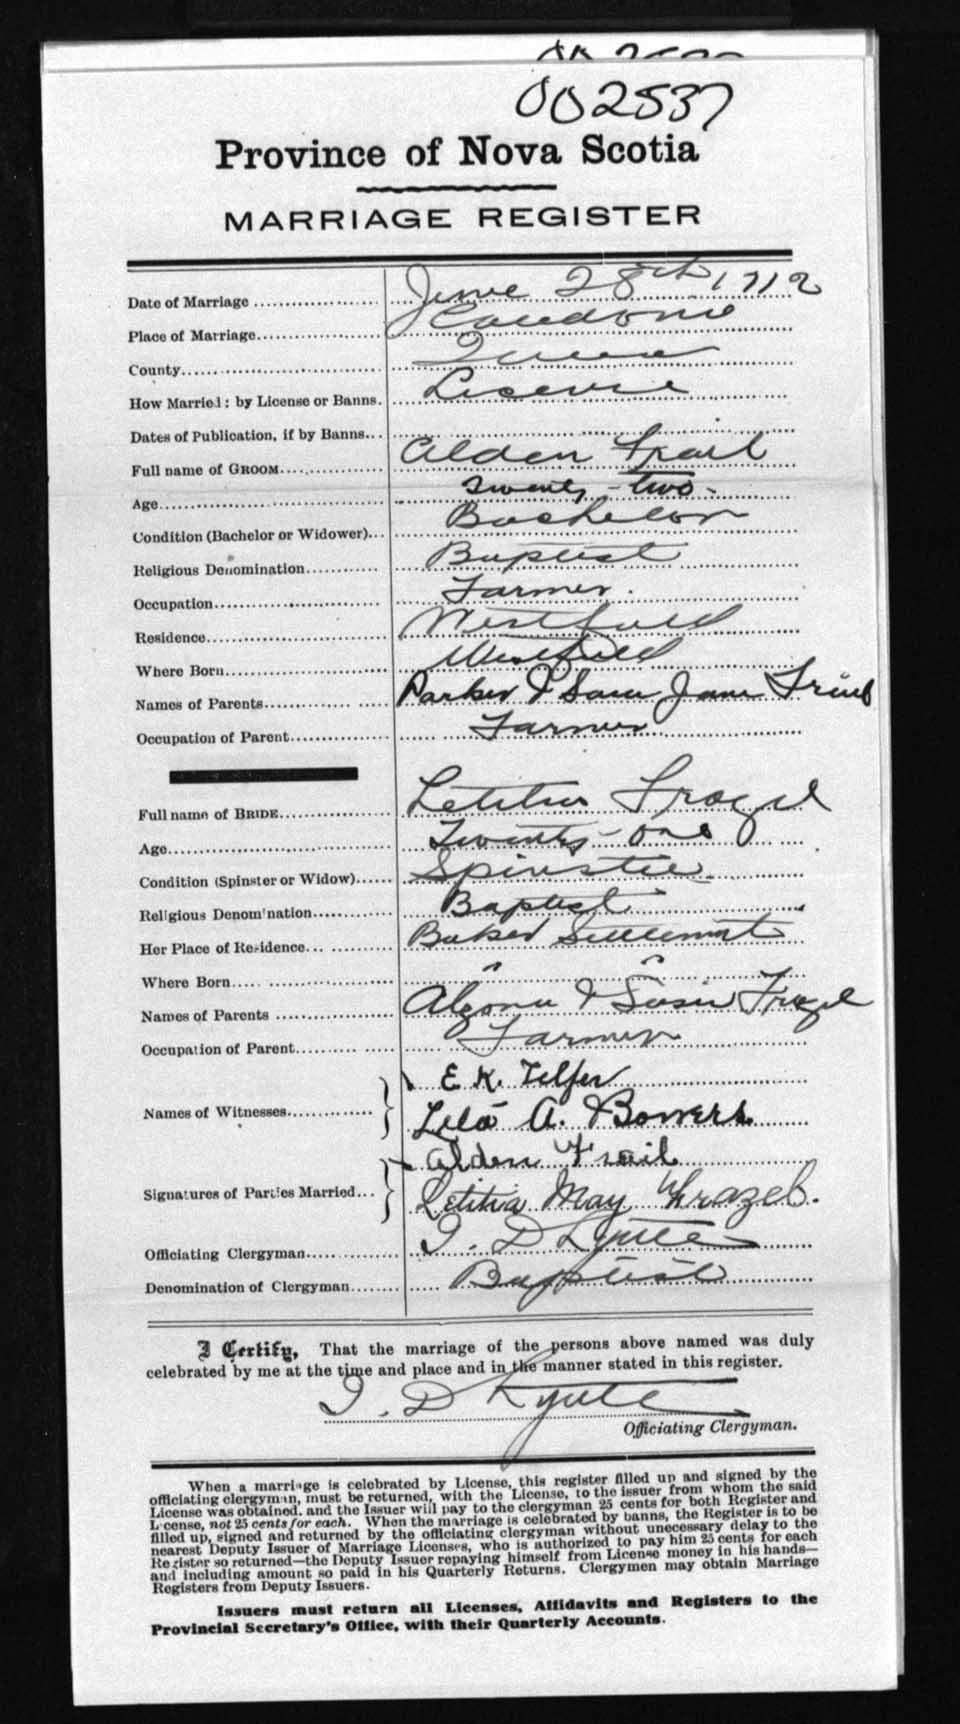 002537
Province of Nova Scotia
MARRIAGE REGISTER
Date of Marriage June 28th 1912
Place of Marriage Caledonia
County Queens
How Married: by License or Banns. License
Dates of Publication, if by Banns
Full name of GROOM Alden Frail
Age Twenty-two
Condition (Bachelor or Widower) Bachelor
Religious Denomination Baptist
Occupation Farmer
Residence Westfield
Where Born Westfield
Names of Parents Parker & Jane Frail
Occupation of Parent Farmer
Full name of BRIDE Letitia
Age Twenty-one
Condition (Spinster or Widow) Spinster
Religious Denomination Baptist
Her Place of Residence Baker Settlement
Where Born " "
Names of Parents & Susie
Occupation of Parent Farmer
Names of Witnesses E. K. Telfer
Lela A. Bowers
Signatures of Parties Married Alden Frail
Letitia May
Officiating Clergyman
Denomination of Clergyman Baptist
I Certify, That the marriage of the persons above named was duly
celebrated by me at the time and place and in the manner stated in this register.
Officiating Clergyman.
When a marriage is celebrated by License, this register filled up and signed by the
officiating clergyman, must be returned, with the License, to the issuer from whom the said
License was obtained, and the Issuer will pay to the clergyman 25 cents for both Register and
License, not 25 cents for each. When the marriage is celebrated by banns, the Register is to be
filled up, signed and returned by the officiating clergyman without unnecessary delay to the
nearest Deputy Issuer of Marriage Licenses, who is authorized to pay him 25 cents for each
Register so returned—the Deputy Issuer repaying himself from License money in his hands—
and including amount so paid in his Quarterly Returns. Clergymen may obtain Marriage
Registers from Deputy Issuers.
Issuers must return all Licenses, Affidavits and Registers to the
Provincial Secretary's Office, with their Quarterly Accounts.